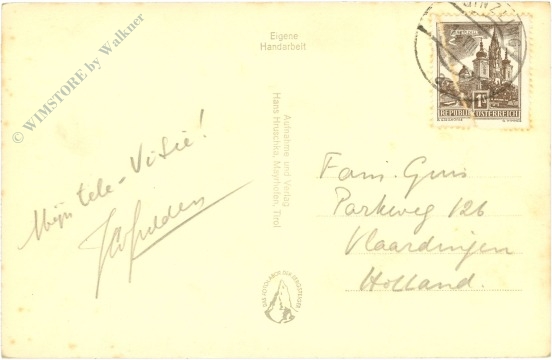 © WIMSTORE by Walkner
Eigene
Handarbeit
REPUBLIK ÖSTERREICH
Aufnahme und Verlag
Hans Hruschka, Mayrhofen, Tirol
Mijn tele-Visie!
Fam. Guis
Parkweg 126
Vlaardingen
Holland.